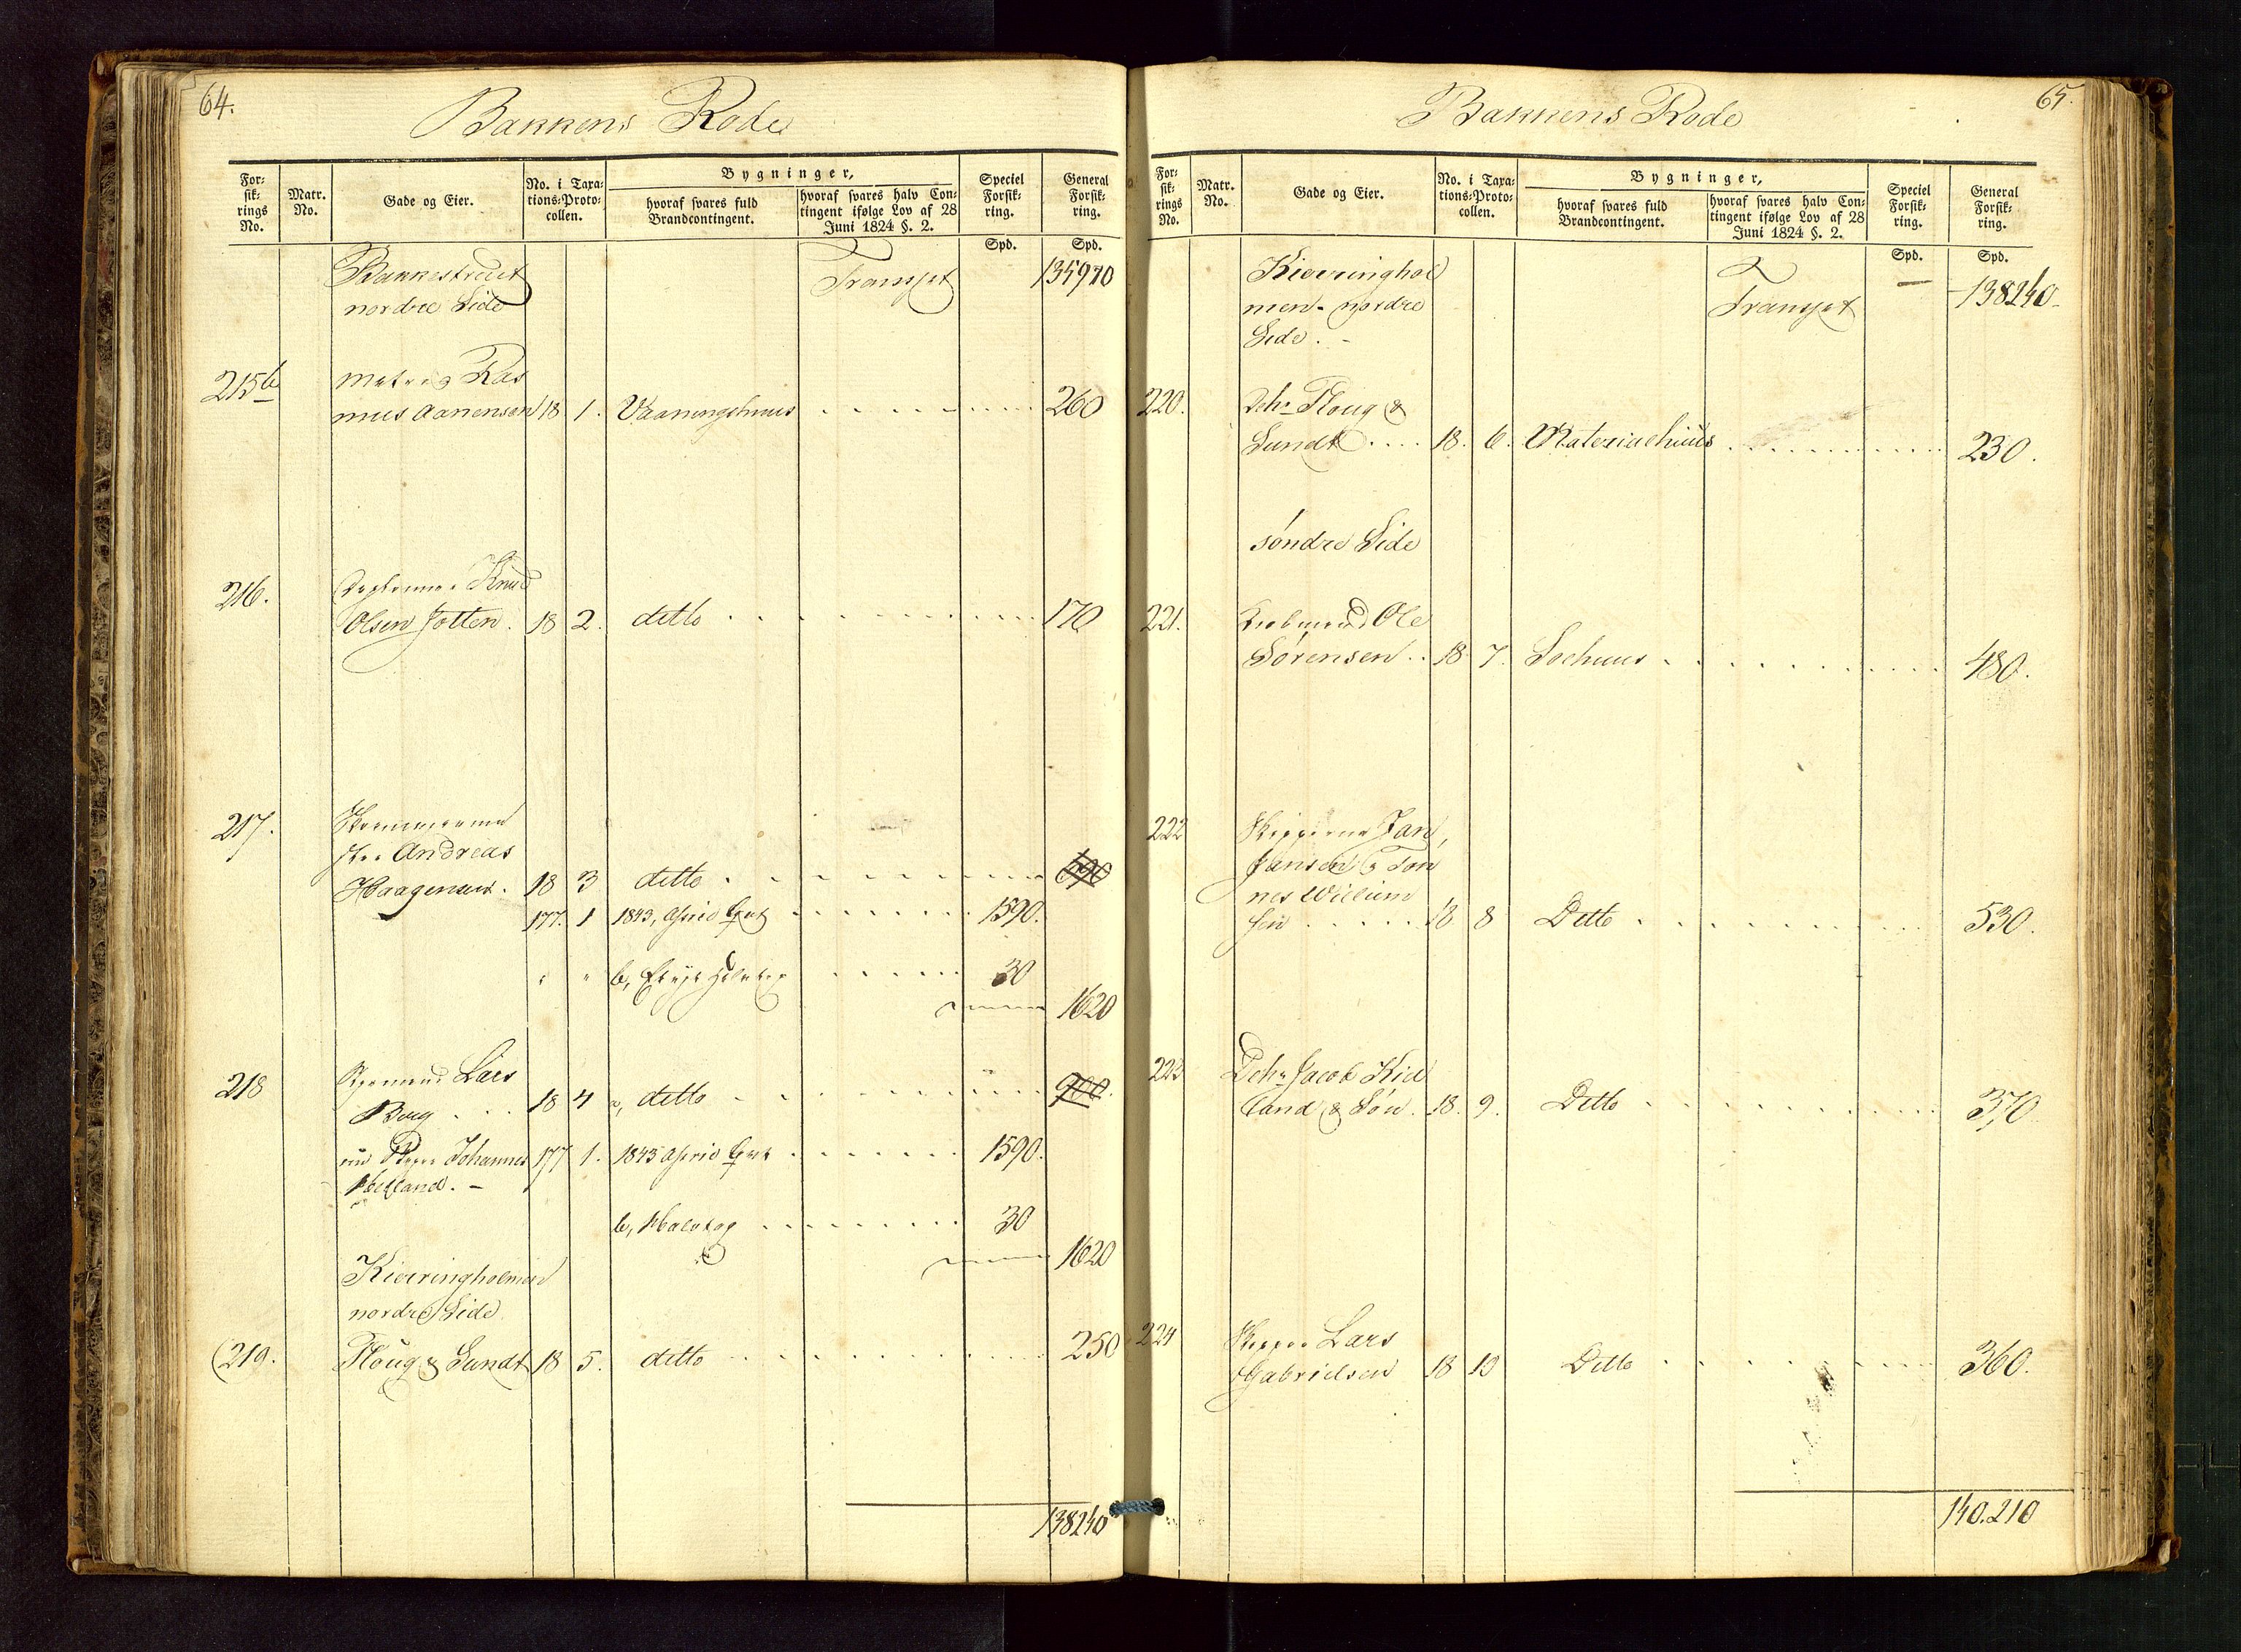 64.
Bakkens Rode
For=
sik=
rings
No.
Matr.
No.
Gade og Eier.
No. i Taxa=
tions=Proto=
collen.
Bygninger,
hvoraf svares fuld
Brandcontingent.
hvoraf svares halv Con=
tingent ifølge Lov af 28
Juni 1824 §. 2.
Speciel
Forsik=
ring.
General
Forsik=
ring.
Spd. Spd.
Bakkestrædet Transpt 135970
nordre Side
215b Ras
mus Aanensen 18 1. Vaaningshuus 260
216. Knud
Olsen Jotten. 18 2. ditto 170
217.
Andreas
Haagensen. 18 3 ditto 690
177. 1 1843, April 1590.
" " b, 30
1620
218 Lars
Berg 18 4 a, ditto 900.
Johannes 177 1. 1843 April 1590.
Helland. -
b, Halvtag 30
1620
Kierringholmen
nordre Side
219. Ploug & Sundt 18 5. ditto 250
138240
65.
Bakkens Rode
For=
sik=
rings
No.
Matr.
No.
Gade og Eier.
No. i Taxa=
tions=Proto=
collen.
Bygninger,
hvoraf svares fuld
Brandcontingent.
hvoraf svares halv Con=
tingent ifølge Lov af 28
Juni 1824 §. 2.
Speciel
Forsik=
ring.
General
Forsik=
ring.
Spd. Spd.
Kierringhol Transpt — 138240.
men. nordre
Side. -
220. Dhr Ploug &
Sundt 18. 6. Materialhuus 230.
søndre Side
221. Ole
Sørensen 18 7. Søehuus 480.
222 Jan
Jansen & Tøn
nes Willum
sen 18 8 Ditto 530.
223 Dhr Jacob Kiel
land & Søn. 18. 9. Ditto 370
224 Lars
Gabrielsen 18 10 Ditto 360.
140.210